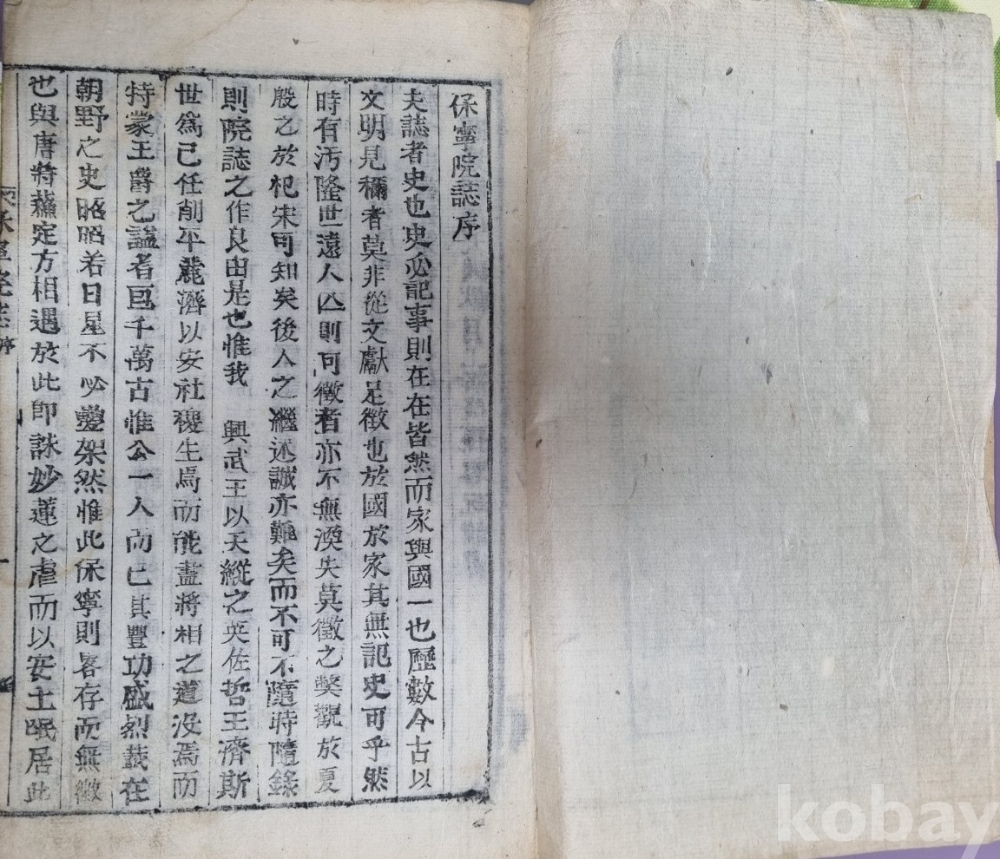 保寧院誌序
夫誌者史也史必記事則在在皆然而家與國一也歷數今古以
文明見稱者莫非從文獻足徵也於國於家其無記史可乎然
時有汚隆世遠人亾則可徵者亦不無湮失莫徵之獘觀於夏
殷之於杞宋可知矣後人之繼述誠亦難矣而不可不隨時隨錄
則院誌之作良由是也惟我 興武王以天縱之英佐哲王濟斯
世爲己任削平麗濟以安社稷生焉而能盡將相之道沒焉而
特蒙王爵之謚者亘千萬古惟公一人而已其豐功盛烈載在
朝野之史昭昭若日星不必疊架然惟此保寧則畧存而無徵
也與唐將蘇定方相遇於此卽誅妙蓮之虐而以安土氓居此
保寧院誌 序
一
kobay